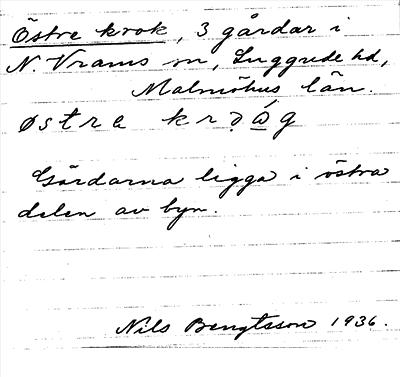 Östre krok, 3 gårdar i
N. Vrams sn, Luggude hd,
Malmöhus län.
østre krǫ́g
Gårdarna ligga i östra
delen av byn.
Nils Bengtsson 1936.